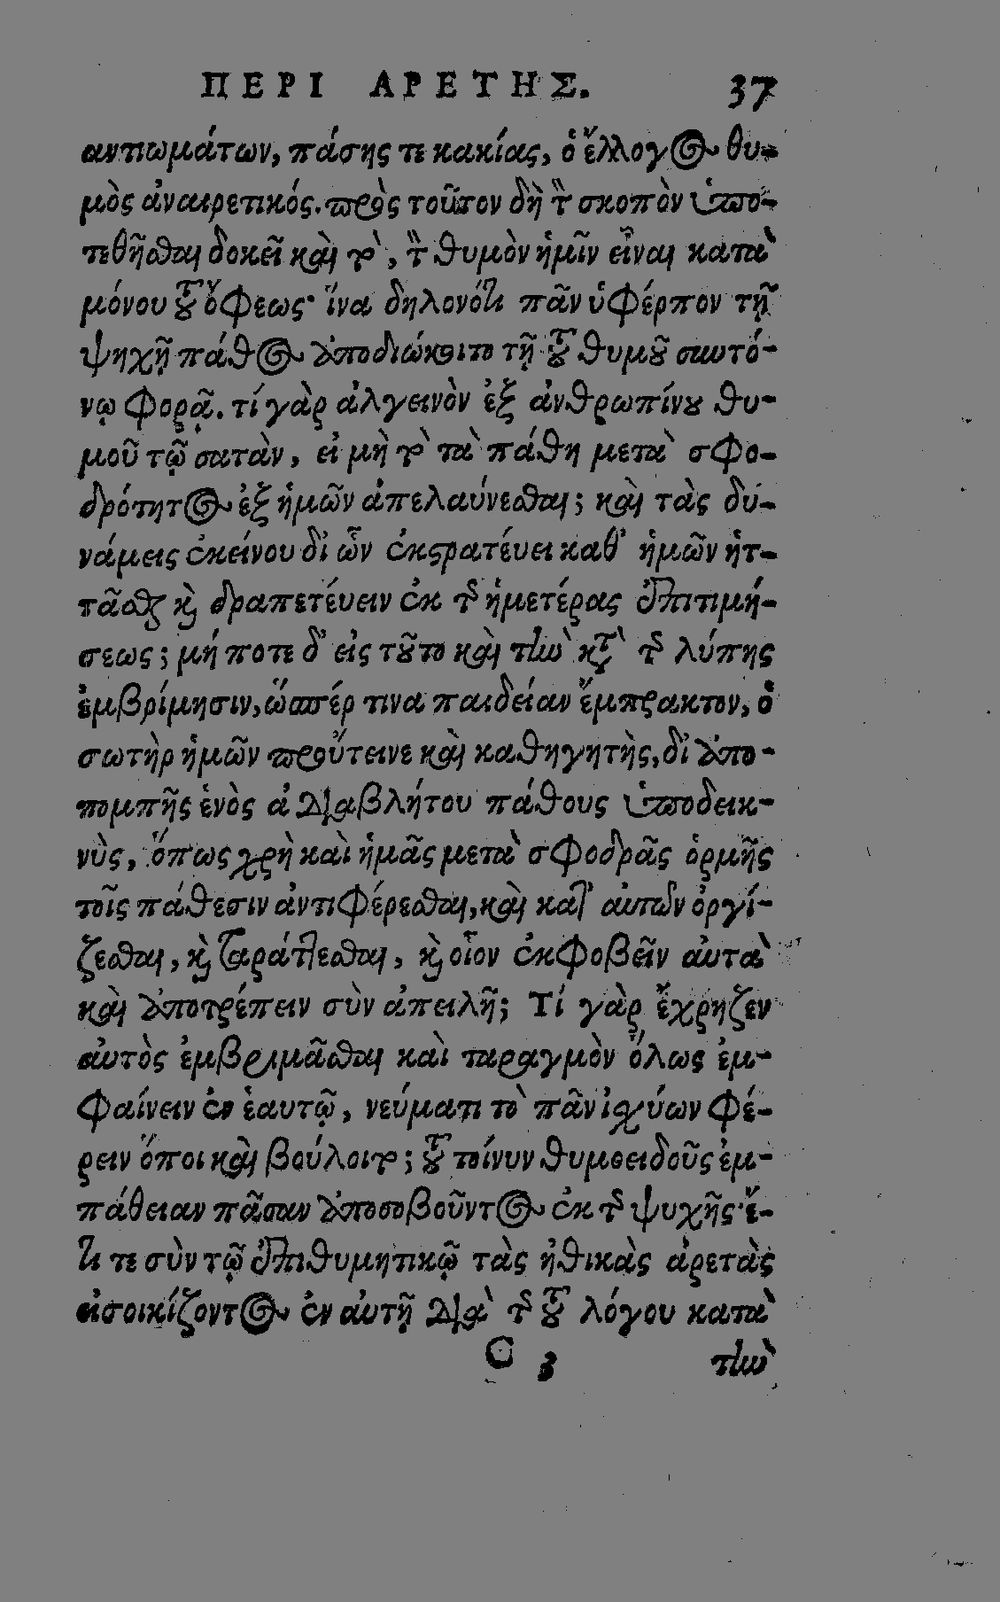 ΠΕΡΙ ΑΡΕΤΗΣ. 37
αντιωμάτων, πάσης τε κακίας, ὁ ἔλλογος θυ-
μὸς ἀναιρετικός. πρὸς τοῦτον δὴ τὸν σκοπὸν ὑπο-
τεθῆσθαι δοκεῖ καὶ τὸ, τὸν θυμὸν ἡμῖν εἶναι κατὰ
μόνου τοῦ ὄφεως· ἵνα δηλονότι πᾶν ὑφέρπον τῇ
ψηχῇ πάθος ἀποδιώκοιτο τῇ τοῦ θυμοῦ συντό-
νῳ φορᾷ. τί γὰρ ἀλγεινὸν ἐξ ἀνθρωπίνου θυ-
μοῦ τῷ σατὰν, εἰ μὴ τὸ τὰ πάθη μετὰ σφο-
δρότητος ἐξ ἡμῶν ἀπελαύνεσθαι; καὶ τὰς δυ-
νάμεις ἐκείνου δι' ὧν ἐκστρατεύει καθ' ἡμῶν ἡτ-
τᾶσθαι καὶ δραπετέυειν ἐκ τῆς ἡμετέρας ἐπιτιμή-
σεως; μή ποτε δ' εἰς τοῦτο καὶ τὴν κατὰ τῆς λύπης
ἐμβρίμησιν, ὥσπέρ τινα παιδείαν ἔμπρακτον, ὁ
σωτὴρ ἡμῶν προὔτεινε καὶ καθηγητὴς, δι' ἀπο-
πομπῆς ἑνὸς ἀδιαβλήτου πάθους ὑποδεικ-
νὺς, ὅπως χρὴ καὶ ἡμᾶς μετὰ σφοδρᾶς ὁρμῆς
τοῖς πάθεσιν ἀντιφέρεσθαι, καὶ κατ' αὐτῶν ὀργί-
ζεσθαι, καὶ ταράττεσθαι, καὶ οἷον ἐκφοβεῖν αὐτὰ
καὶ ἀποτρέπειν σὺν ἀπειλῇ; Τί γὰρ ἔχρηζεν
αὐτὸς ἐμβριμᾶσθαι καὶ ταραγμὸν ὅλως ἐμ-
φαίνειν ἐν ἑαυτῷ, νεύματι τὸ πᾶν ἰσχύων φέ-
ρειν ὅποι καὶ βούλοιτο; τοῦ τοίνυν θυμοειδοῦς ἐμ-
πάθειαν πᾶσαν ἀποσοβοῦντος ἐκ τῆς ψυχῆς· ἔ-
τι τε σὺν τῷ ἐπιθυμητικῷ τὰς ἠθικὰς ἀρετὰς
εἰσοικίζοντος ἐν αὐτῇ διὰ τῆς τοῦ λόγου κατὰ
C 3 τὴν